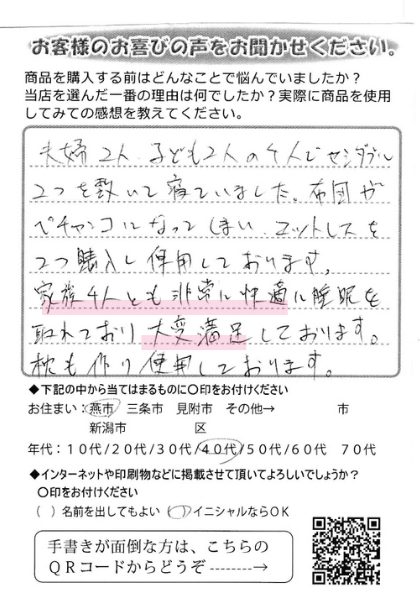 お客様のお喜びの声をお聞かせください。
商品を購入する前はどんなことで悩んでいましたか？
当店を選んだ一番の理由は何でしたか？実際に商品を使用
してみての感想を教えてください。
夫婦2人、子ども2人の4人でセミダブル
2つを敷いて寝ていました。布団が
ペチャンコになってしまい、マットレスを
2つ購入し使用しております。
家族4人とも非常に快適に睡眠を
取れており大変満足しております。
枕も作り使用しております。
◆下記の中から当てはまるものに〇印をお付けください
お住まい：燕市 三条市 見附市 その他→ 市
新潟市 区
年代：１０代/２０代/３０代/４０代/５０代/６０代 ７０代
◆インターネットや印刷物などに掲載させて頂いてよろしいでしょうか？
〇印をお付けください
( ) 名前を出してもよい ( ) イニシャルならＯＫ
手書きが面倒な方は、こちらの
ＱＲコードからどうぞ --------→